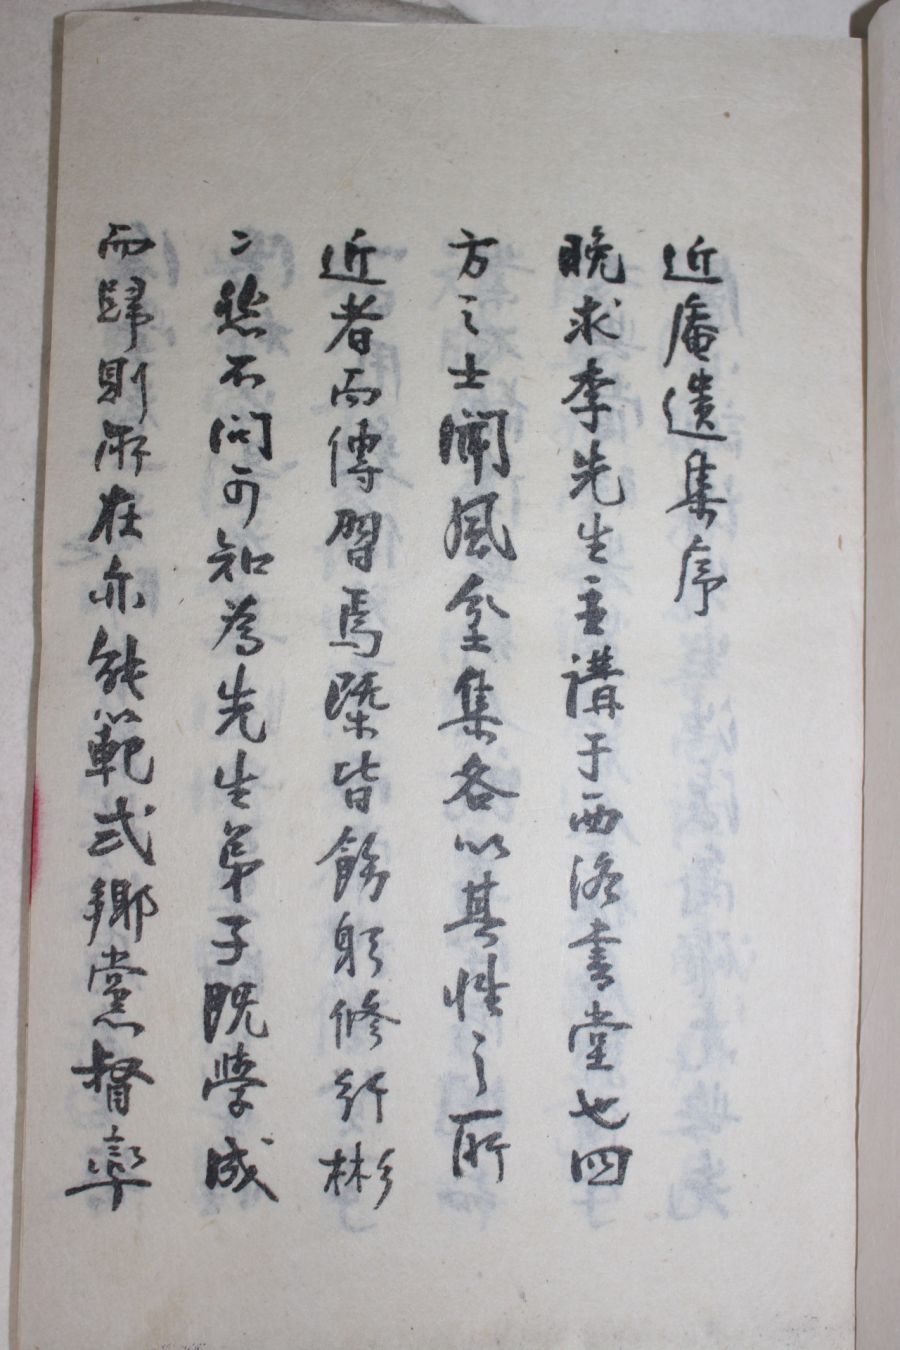 近庵遺集序
晩求李先生主講于西洛書堂也四
方之士聞風坌集各以其性之所
近者而傳習焉槩皆飭躬修行彬
〻然不問可知爲先生弟子既學成
而歸則所在亦能範式鄕黨督率